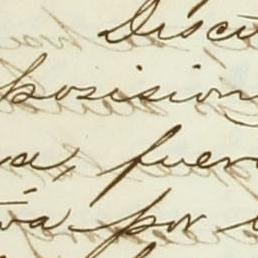 Discu
posision
a, fuer
va por